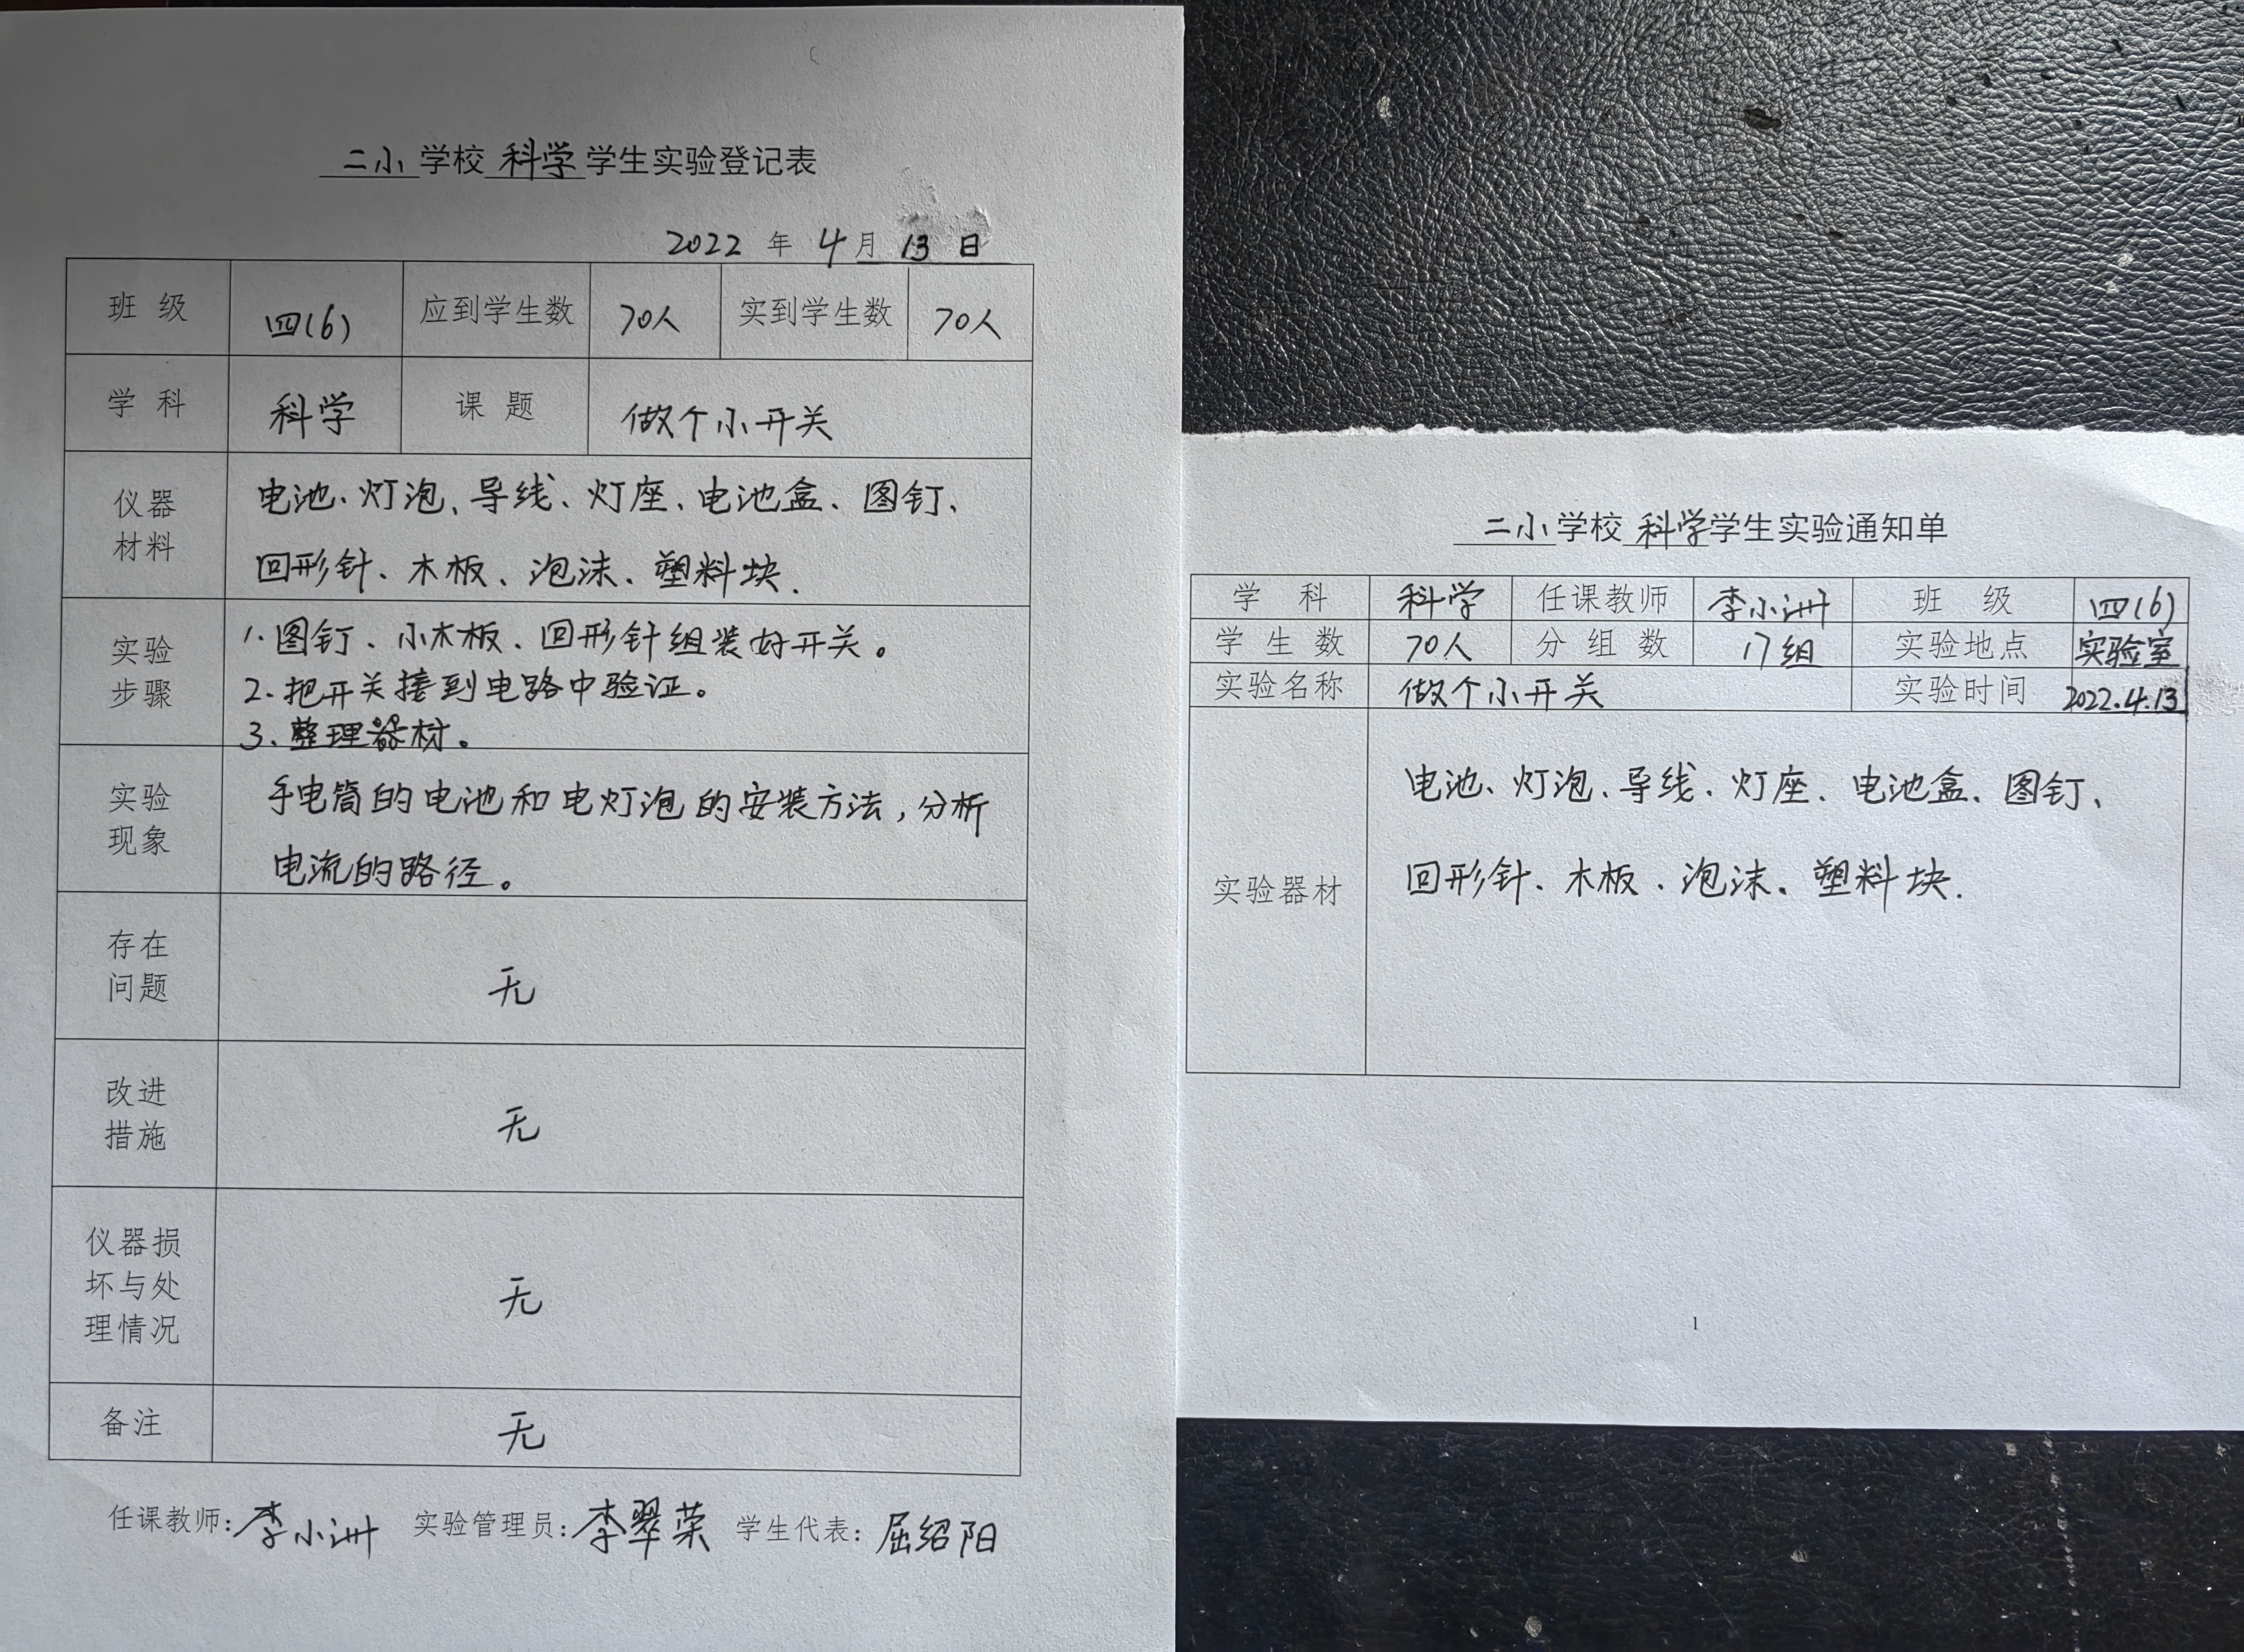 二小学校科学学生实验登记表
2022年4月13日
班级 四(6) 应到学生数 70人 实到学生数 70人
学科 科学 课题 做个小开关
仪器材料
电池、灯泡、导线、灯座、电池盒、图钉、
回形针、木板、泡沫、塑料块.
实验步骤
1.图钉、小木板、回形针组装好开关。
2.把开关接到电路中验证。
3.整理器材。
实验现象
手电筒的电池和电灯泡的安装方法,分析
电流的路径。
存在问题 无
改进措施 无
仪器损坏与处理情况 无
备注 无
任课教师:李小洲 实验管理员:李翠荣 学生代表:屈绍阳
二小学校科学学生实验通知单
学科 科学 任课教师 李小洲 班级 四(6)
学生数 70人 分组数 17组 实验地点 实验室
实验名称 做个小开关 实验时间 2022.4.13
实验器材
电池、灯泡、导线、灯座、电池盒、图钉、
回形针、木板、泡沫、塑料块.
1